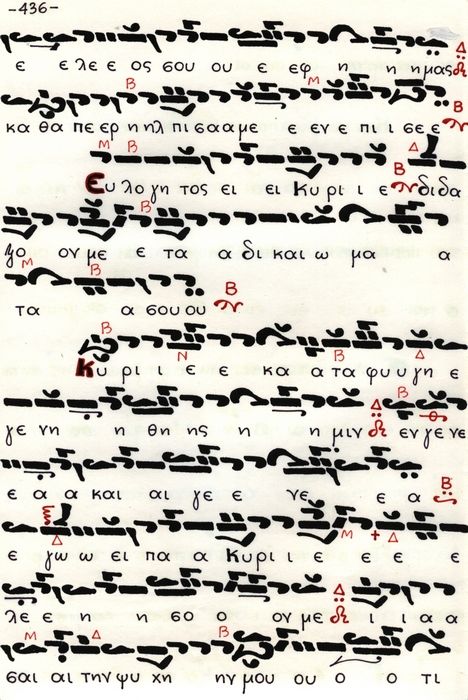 -436-
ε ελεε οσου ου ε εφ η η ημας
καθα πεερ ηηλ πι σααμε ε εν επ ι ι σε ε
Ευ λο γη τος ει ει Κυ ρι ι ε διδα
ξο ουμε ε τα α δι και ω μα α
τα α σου ου
Κυ ρι ι ε κα α τα φυ υ γη ε
γε νη η θη ης η η μιν εν γε νε
ε α α και αι γε ε νε ε α
ε γω ω ει πα α Κυ ρι ι ε ε ε ε
λε ε η η σο ο ου με ι ι α α
σαι αι την ψυ χη ην μου ου ο ο τι